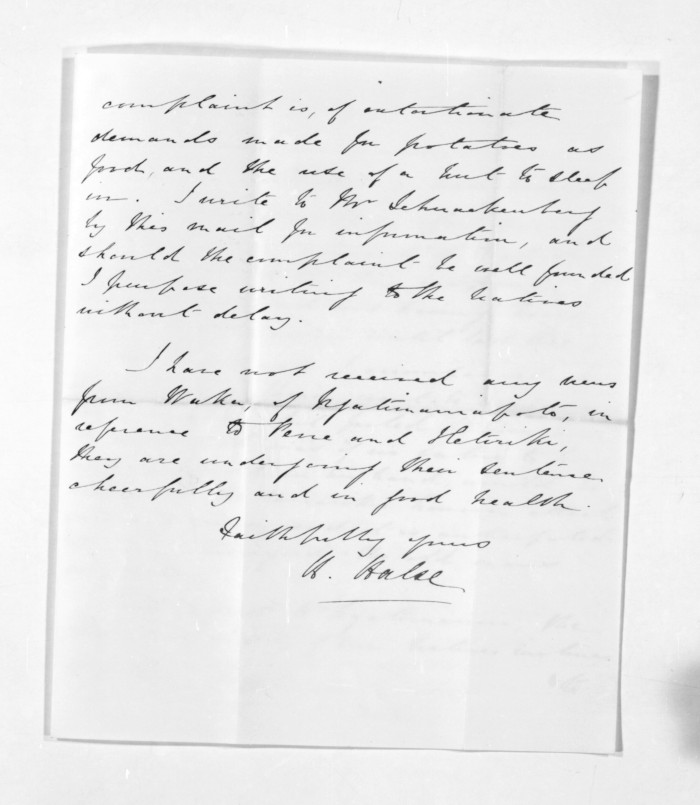 complaint is, of extortionate
demands made for potatoes as
food, and the use of a hut to sleep
in. I write to Mr Schnackenberg
by this mail for information, and
should the complaint be well founded
I purpose writing to the Natives
without delay.
I have not received any news
from Waka, of Ngatimaniapoto, in
reference to Pene and Hetiriki,
they are undergoing their sentence
cheerfully and in good health.
Faithfully yours
H. Halse